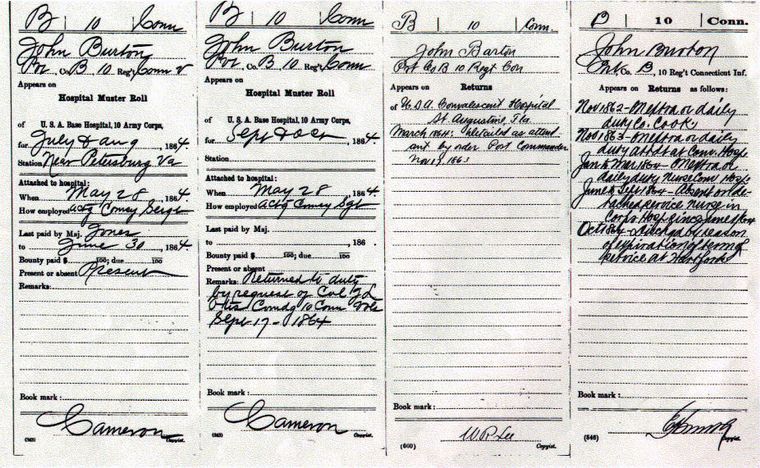 B | 10 | Conn
John Burton
Pvt, Co. B 10 Reg't Conn V
Appears on
Hospital Muster Roll
of U. S. A. Base Hospital, 10 Army Corps,
for July & Aug, 1864.
Station Near Petersburg Va
Attached to hospital:
When May 28, 1864.
How employed Actg Comsy Sergt
Last paid by Maj. Jones
to June 30, 1864.
Bounty paid $ 100; due 100
Present or absent Present
Remarks:
Book mark:
Cameron
Copyist.
B | 10 | Conn
John Burton
Pvt, Co. B 10 Reg't Conn
Appears on
Hospital Muster Roll
of U. S. A. Base Hospital, 10 Army Corps,
for Sept & Oct, 1864.
Station
Attached to hospital:
When May 28, 1864
How employed Actg Comsy Sgt
Last paid by Maj.
to , 186
Bounty paid $ 100; due 100
Present or absent
Remarks: Returned to duty
by request of Col J L
Otis Comdg 10 Conn Vols
Sept 17 - 1864
Book mark:
Cameron
Copyist.
B | 10 | Conn.
John Barton
Pvt Co B 10 Regt Con
Appears on Returns
of U.S.A. Convalescent Hospital
St Augustine, Fla.
March 1864: Detailed as attend
ant by order Post Commander
Nov 18 1863
Book mark:
W R Lee
(600) Copyist.
B | 10 | Conn.
John Burton
Co. B, 10 Reg't Connecticut Inf.
Appears on Returns as follows:
Nov 1862 - on extra or daily
duty Co. Cook
Nov 1863 - on extra or daily
duty attdt at Conv. Hosp
Jan to Mar 1864 - on extra or
daily duty nurse Conv Hosp
June to Sept 1864 - Absent on de-
tached service nurse in
Corps Hosp since June 1864
Oct 1864 - dischgd by reason
of expiration of term of
service at Hartford
Book mark:
(546) Copyist.